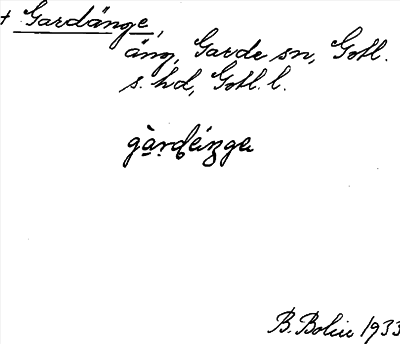 + Gardänge,
äng, Garde sn, Gotl.
s. hd, Gotl. l.
B. Bolin 1933